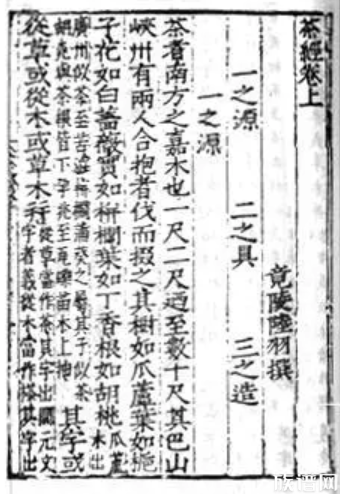 茶經卷上
竟陵陸羽撰
一之源 二之具 三之造
一之源
茶者南方之嘉木也一尺二尺迺至數十尺其巴山
峽州有兩人合抱者伐而掇之其樹如瓜蘆葉如梔
子花如白薔薇實如栟櫚葉如丁香根如胡桃瓜蘆木出
廣州似茶至苦澁栟櫚蒲葵之屬其子似茶
胡桃與茶根皆下孕兆至瓦礫苗木上抽其字或
從草或從木或草木并從草當作茶其字出開元文
字者義從木當作搽其字出
族谱网